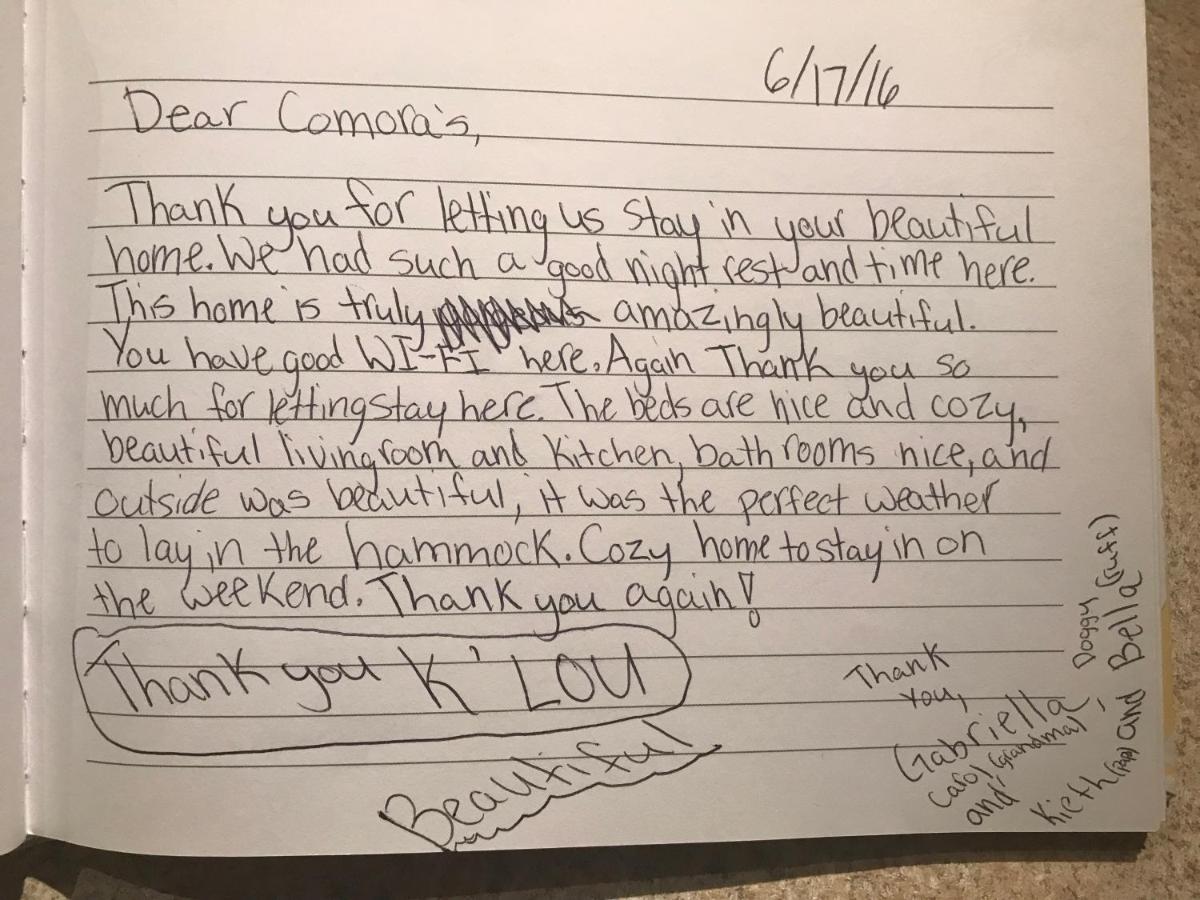 6/17/16
Dear Comora's,
Thank you for letting us stay in your beautiful
home. We had such a good night rest and time here.
This home is truly amazingly beautiful.
You have good WI-FI here. Again Thank you so
much for letting stay here. The beds are nice and cozy,
beautiful living room and kitchen, bathrooms nice, and
outside was beautiful, it was the perfect weather
to lay in the hammock. Cozy home to stay in on
the weekend. Thank you again!
Thank you K' LOU
Beautiful
Thank
You,
Gabriella
Carol (grandma)
and
Kieth (Pap) and Bella (ruff)
Doggy